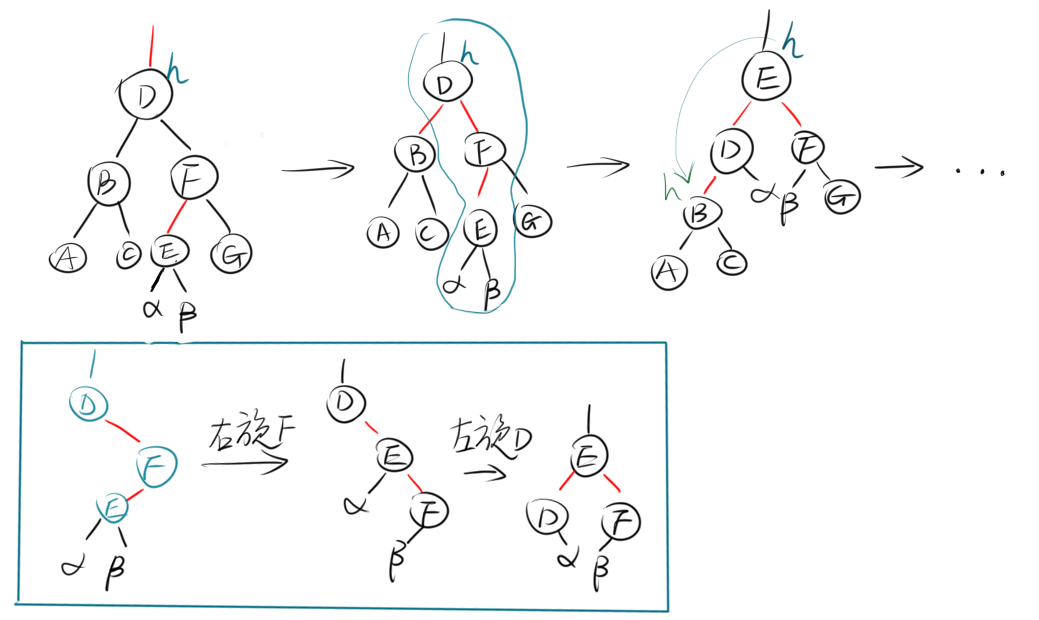 D h
B F
A C E G
α β
D h
B F
A C E G
α β
E h
D F
h B α β G
A C
...
D
F
E
α β
右旋F
D
E
α F
β
左旋D
E
D F
α β